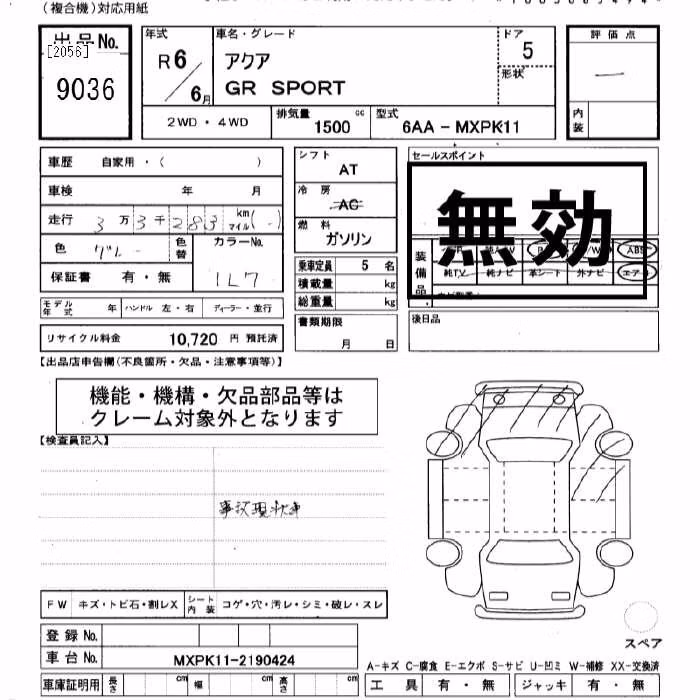 (複合機)対応用紙
出品No.
[2056]
9036
年式
R6/6月
車名・グレード
アクア
GR SPORT
ドア
5
形状
評価点
—
内装
2WD・4WD
排気量
1500 cc
型式
6AA-MXPK11
車歴 自家用・( )
車検 年 月
走行 3万3千283 km マイル( )
色 グレー 色替 カラーNo. 1L7
保証書 有・無
モデル年式 年 ハンドル 左・右 ディーラー・並行
リサイクル料金 10,720 円 預託済
シフト
AT
冷房
AC
燃料
ガソリン
乗車定員 5 名
積載量 kg
総重量 kg
書類期限
月 日
セールスポイント
無効
装備品
ABS
純TV 純ナビ 革シート 外ナビ エアB
後日品
【出品店申告欄(不良箇所・欠品・注意事項等)】
機能・機構・欠品部品等は
クレーム対象外となります
【検査員記入】
事故現状車
FW キズ・トビ石・割レX シート内装 コゲ・穴・汚レ・シミ・破レ・スレ
登録No.
車台No. MXPK11-2190424
車庫証明用 長さ cm 幅 cm 高さ cm
スペア
A-キズ C-腐食 E-エクボ S-サビ U-凹ミ W-補修 XX-交換済
工具 有・無 ジャッキ 有・無